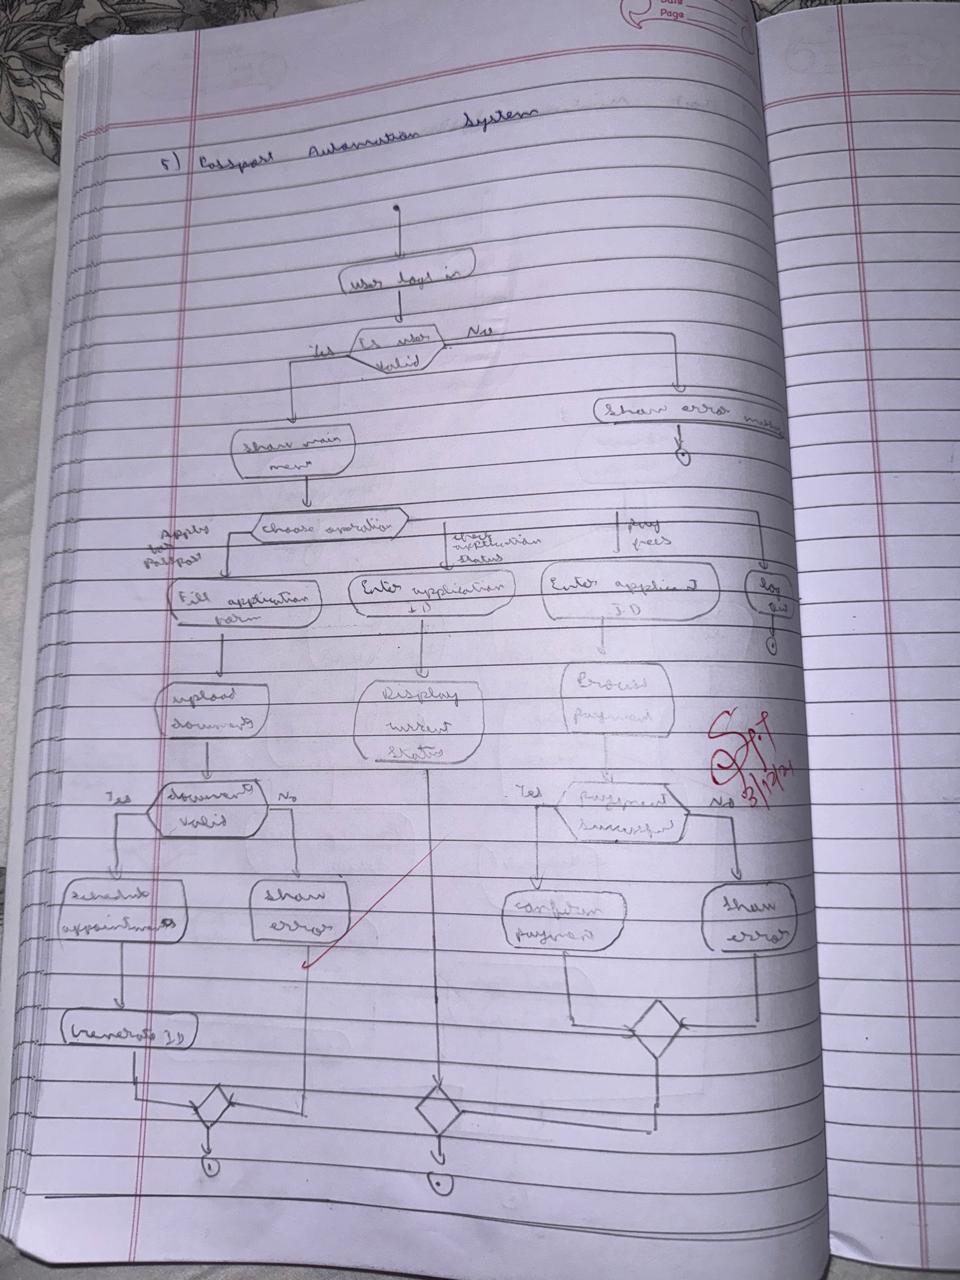 Date
Page
5) Passport Automation System
User logs in
Is user
valid
Yes
No
Show error message
Show main
menu
Choose operation
Apply
for
Passport
check
application
status
pay
fees
Fill application
form
Enter application
ID
Enter applicant
ID
log
out
upload
documents
Display
current
status
Process
payment
documents
valid
Yes
No
payment
successful
Yes
No
3/12/21
Schedule
appointments
Show
error
Confirm
payment
Show
error
Generate ID